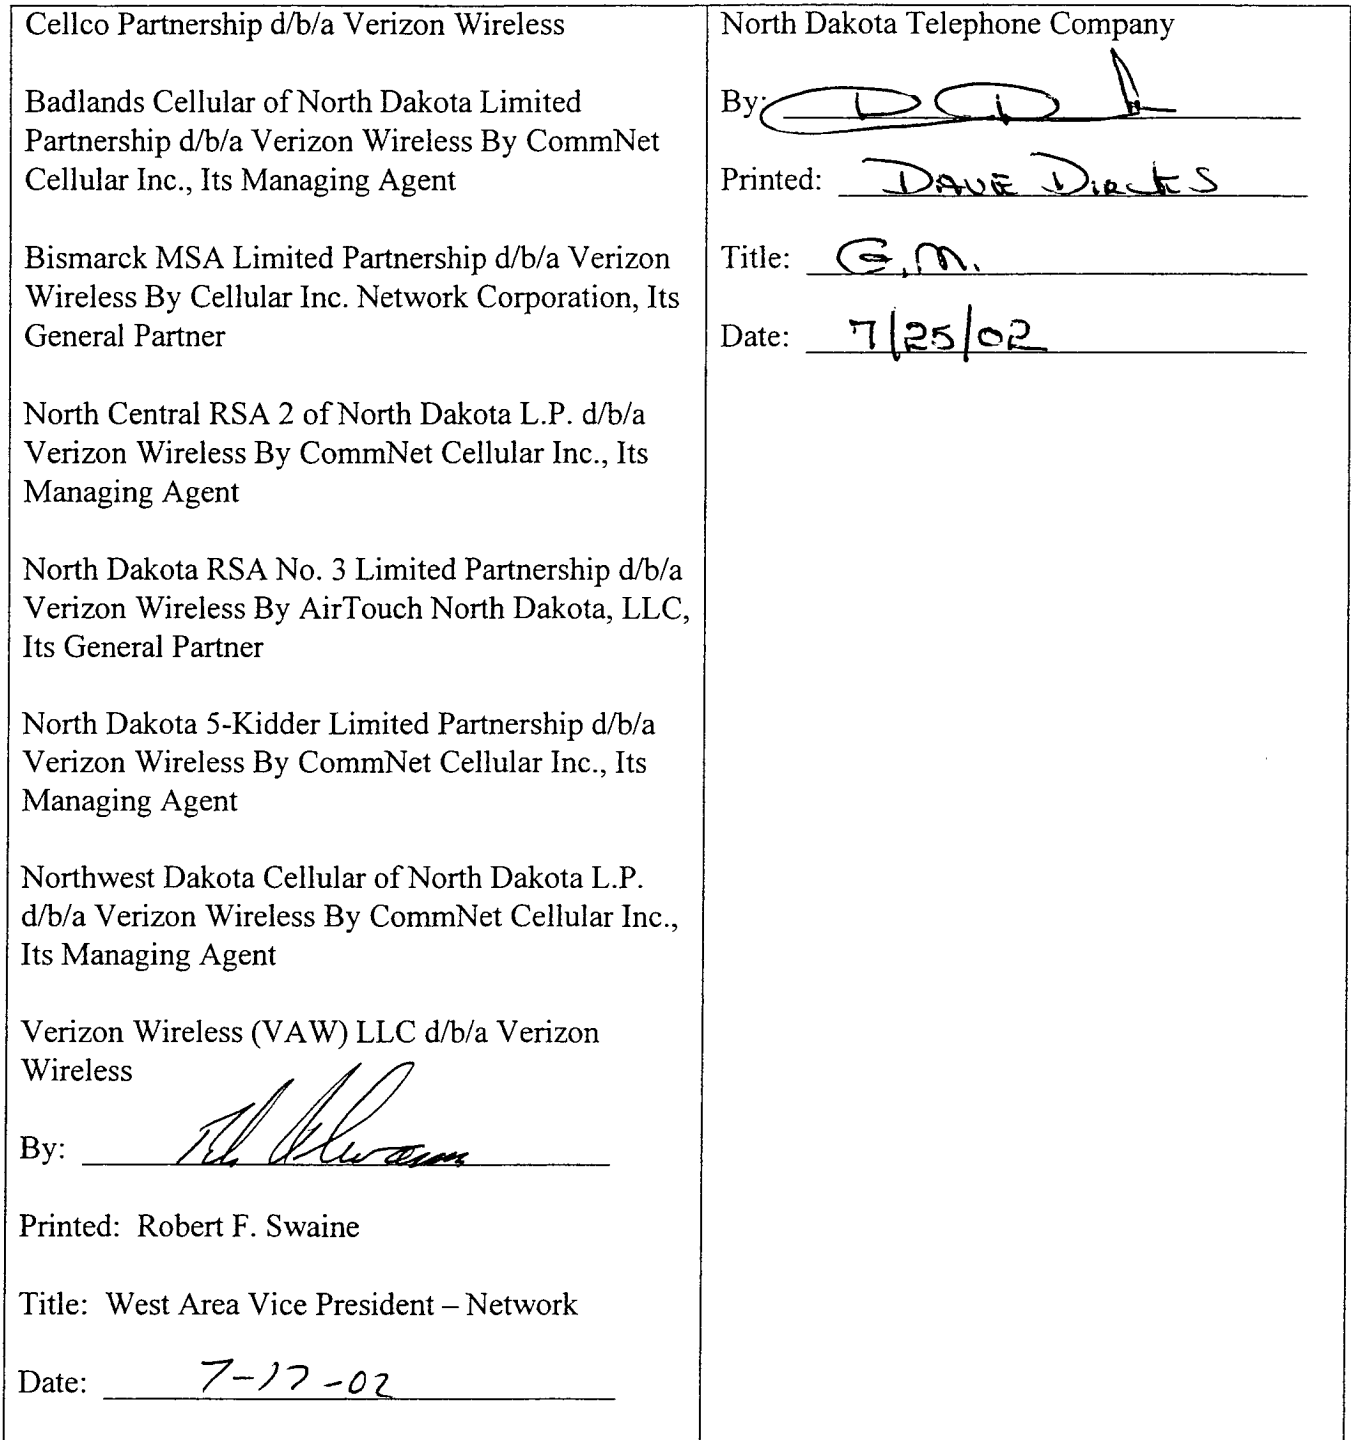 Cellco Partnership d/b/a Verizon Wireless
Badlands Cellular of North Dakota Limited
Partnership d/b/a Verizon Wireless By CommNet
Cellular Inc., Its Managing Agent
Bismarck MSA Limited Partnership d/b/a Verizon
Wireless By Cellular Inc. Network Corporation, Its
General Partner
North Central RSA 2 of North Dakota L.P. d/b/a
Verizon Wireless By CommNet Cellular Inc., Its
Managing Agent
North Dakota RSA No. 3 Limited Partnership d/b/a
Verizon Wireless By AirTouch North Dakota, LLC,
Its General Partner
North Dakota 5-Kidder Limited Partnership d/b/a
Verizon Wireless By CommNet Cellular Inc., Its
Managing Agent
Northwest Dakota Cellular of North Dakota L.P.
d/b/a Verizon Wireless By CommNet Cellular Inc.,
Its Managing Agent
Verizon Wireless (VAW) LLC d/b/a Verizon
Wireless
By:
Printed: Robert F. Swaine
Title: West Area Vice President – Network
Date: 7-17-02
North Dakota Telephone Company
By:
Printed: Dave Dircks
Title: G.M.
Date: 7/25/02